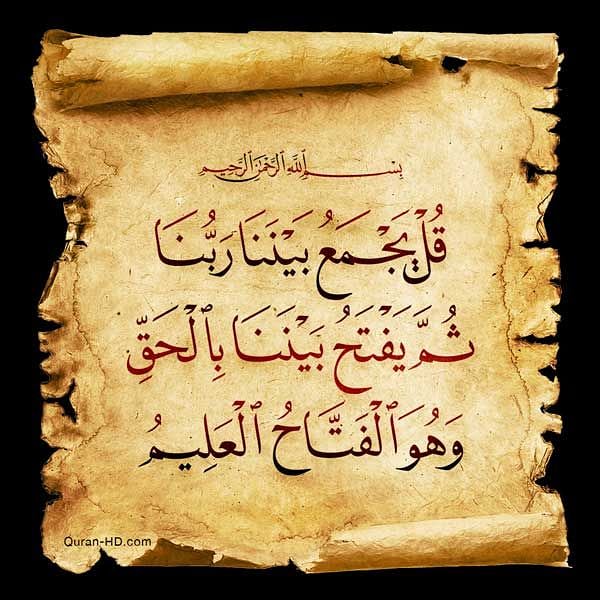 بِسْمِ ٱللَّهِ ٱلرَّحْمَٰنِ ٱلرَّحِيمِ
قُلْ يَجْمَعُ بَيْنَنَا رَبُّنَا
ثُمَّ يَفْتَحُ بَيْنَنَا بِٱلْحَقِّ
وَهُوَ ٱلْفَتَّاحُ ٱلْعَلِيمُ
Quran-HD.com